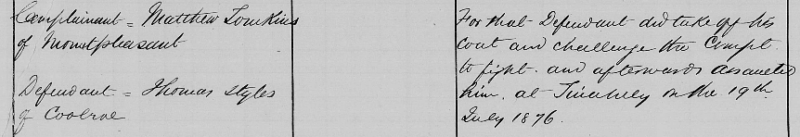 Complainant = Matthew Tomkins
of Mountpleasant
Defendant = Thomas Styles
of Coolroe
For that Defendant did take off his
coat and challenge the Compt
to fight. and afterwards assaulted
him. at Tinahely on the 19th
July 1876.